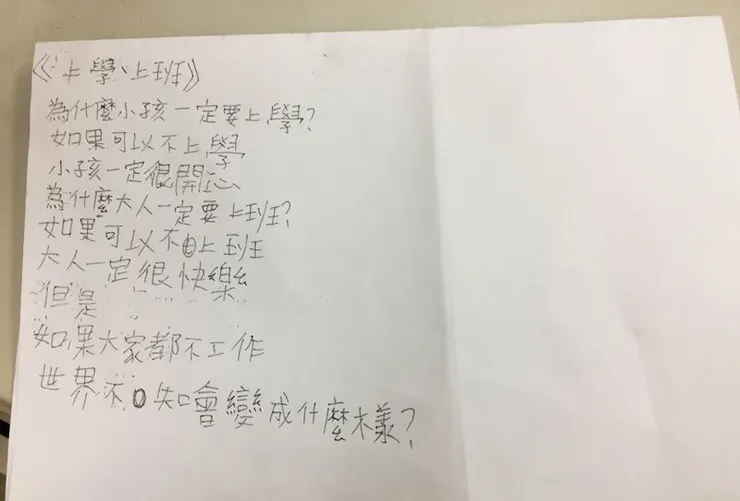 《上學、上班》
為什麼小孩一定要上學?
如果可以不上學
小孩一定很開心
為什麼大人一定要上班?
如果可以不上班
大人一定很快樂
但是
如果大家都不工作
世界不知會變成什麼樣?